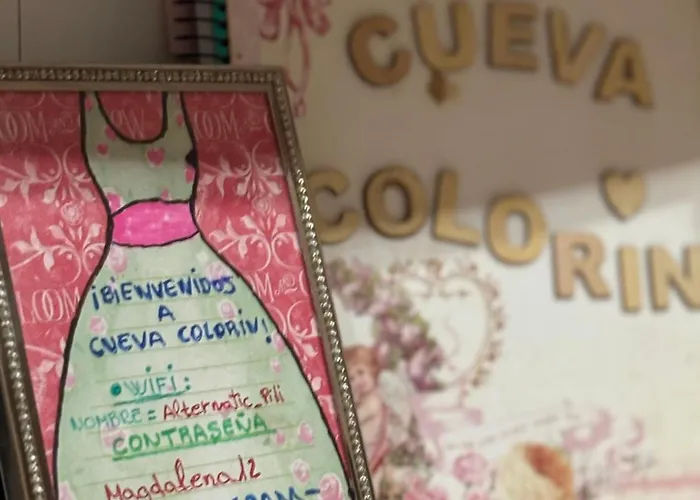 CUEVA
COLORIN
¡BIENVENIDOS
A
CUEVA COLORIN!
• WiFi:
NOMBRE = Alternatic_Pili
CONTRASEÑA
Magdalena12